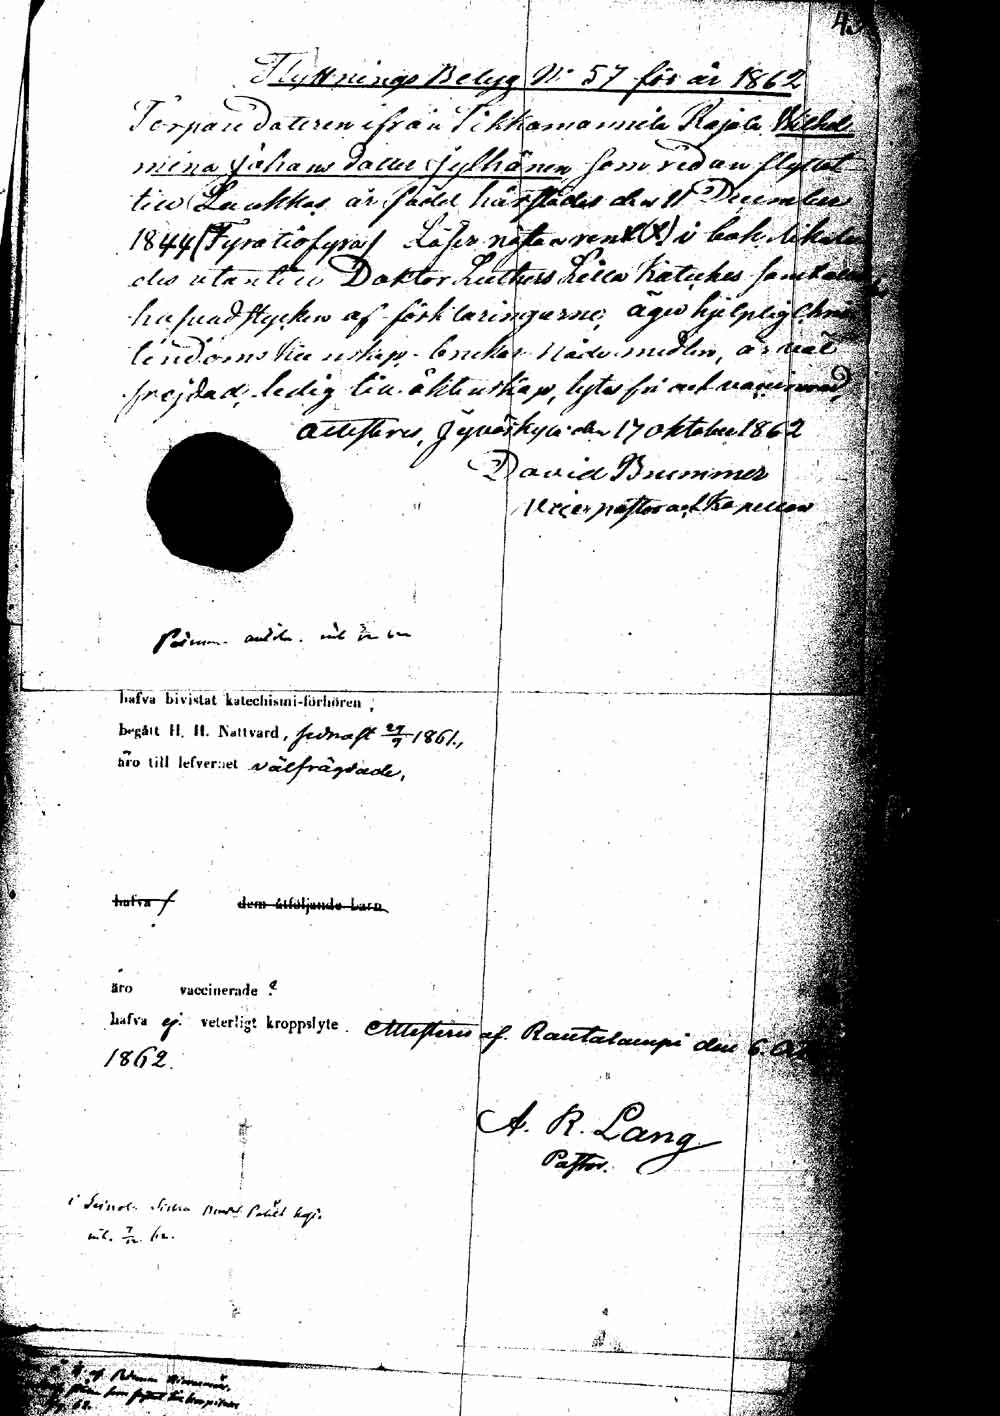 Flyttnings Betyg No 57 för år 1862
Torpare dotteren ifrån Tikkamannila Rajala Wilhel-
mina Johans dotter Jylhänen, som redan flyttat
till Laukkas är född härstädes den 11 December
1844 (Fyratiofyra) Läser nästan rent (X) i bok, likale-
des utantill Doktor Luthers Lilla Kateches samt
hufvudstycken af förklaringarne, äger hjelplig Chris-
tendoms kunskap, brukar Nådemedlen, är väl
frejdad, ledig till äktenskap, lytes fri och vaccinerad,
Attesteres, Jyväskylä den 17 oktober 1862
David Brummer
Vice pastor och Kapellan
hafva bivistat katechismi-förhören,
begått H. H. Nattvard, sednast 29/9 1861,
äro till lefvernet välfrägdade,
hafva dem åtföljande barn
äro vaccinerade
hafva ej veterligt kroppslyte. Attesteres af. Rautalampi den 6
1862.
A. R. Lang
Pastor.